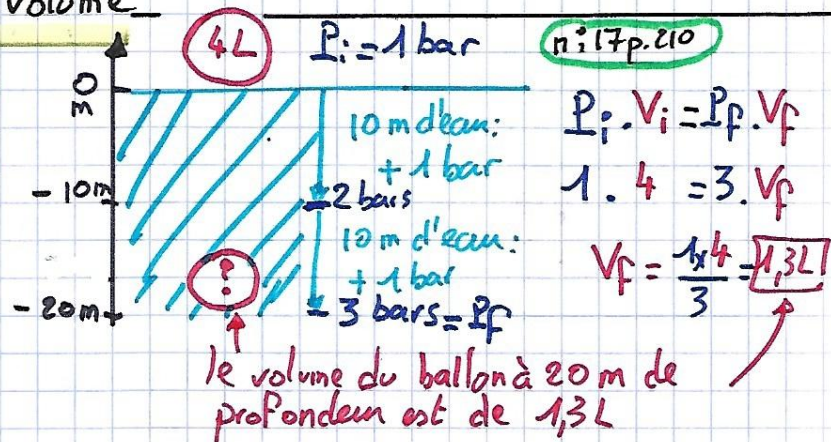 volume
4L
Pi = 1 bar
n°:17p.210
0
m
10 m d'eau:
+ 1 bar
- 10m
2 bars
10 m d'eau:
+ 1 bar
?
- 20m
3 bars = Pf
Pi . Vi = Pf . Vf
1 . 4 = 3 . Vf
Vf = 1x4/3 = 1,3L
le volume du ballon à 20 m de
profondeur est de 1,3 L